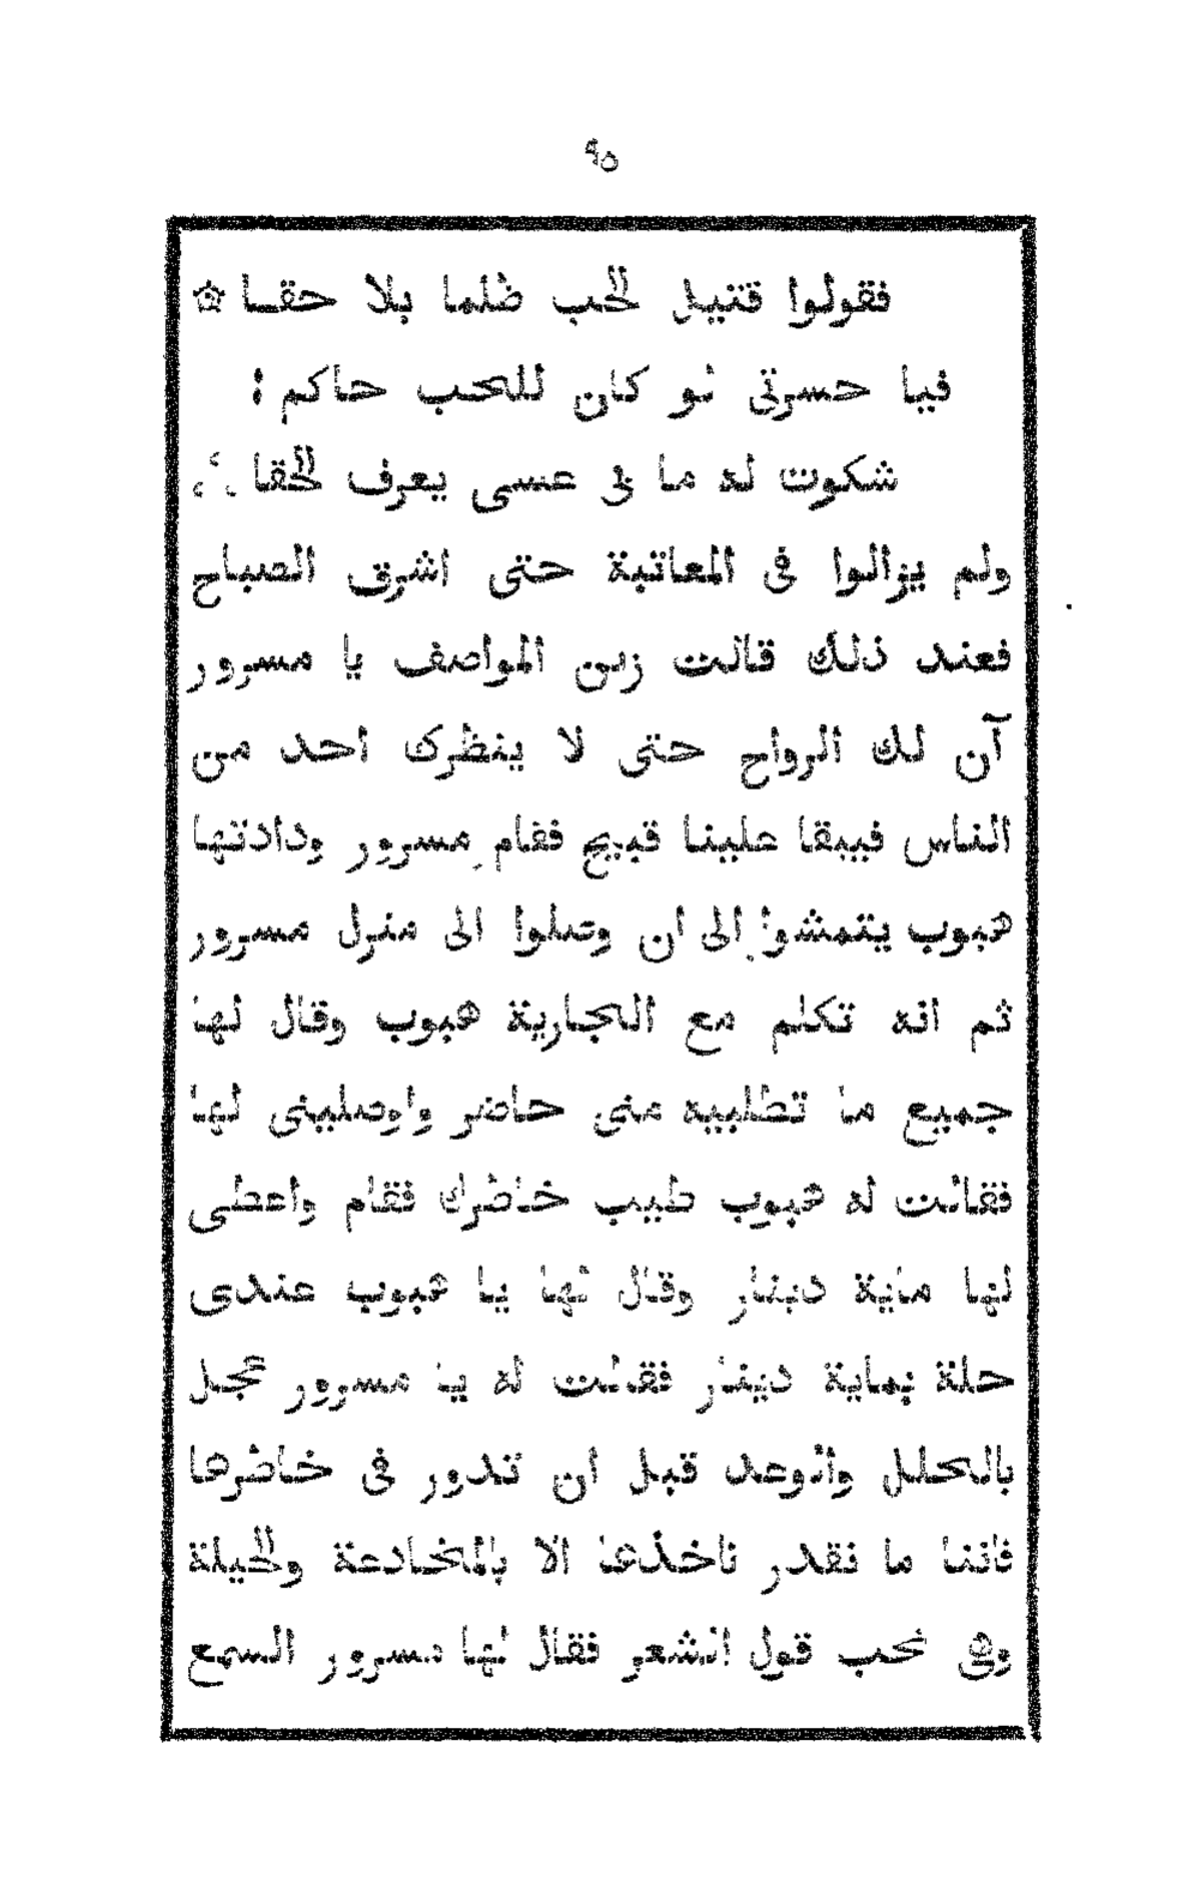 ٩٥
فقولوا قتيل الحب ظلما بلا حقا ۞
فيا حسرتى لو كان للحب حاكم :
شكوت له ما فى عسى يعرف الحقا ؞
ولم يزالوا فى المعاتبة حتى اشرق الصباح
فعند ذلك قالت زين المواصف يا مسرور
آن لك الرواح حتى لا ينظرك احد من
الناس فيبقا علينا قبيح فقام مسرور ودادتها
هبوب يتمشوا الى ان وصلوا الى منزل مسرور
ثم انه تكلم مع الجارية هبوب وقال لها
جميع ما تطلبيه منى حاضر واوصلينى لها
فقالت له هبوب طيب خاطرك فقام واعطى
لها ماية دينار وقال لها يا هبوب عندى
حلة بماية دينار فقالت له يا مسرور عجل
بالحلل والوعد قبل ان تدور فى خاطرها
فاننا ما نقدر ناخذها الا بالمخادعة والحيلة
وهى تحب قول الشعر فقال لها مسرور السمع